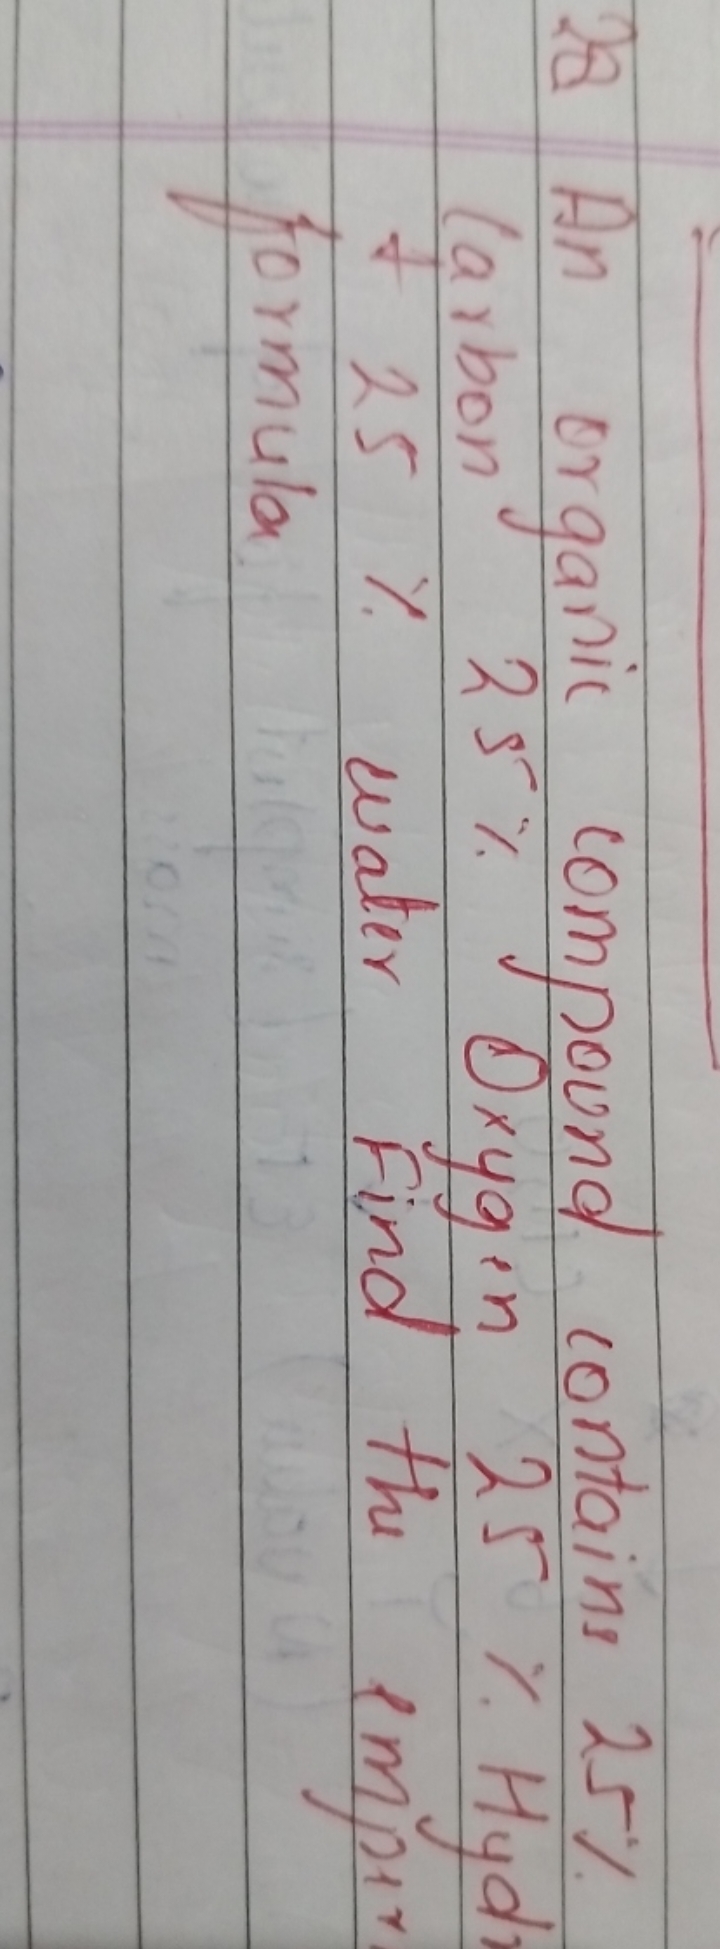 28 An organic compound contains 25%
Carbon 25% Oxygen 25% Hydr
+ 25% water Find the empir
formula